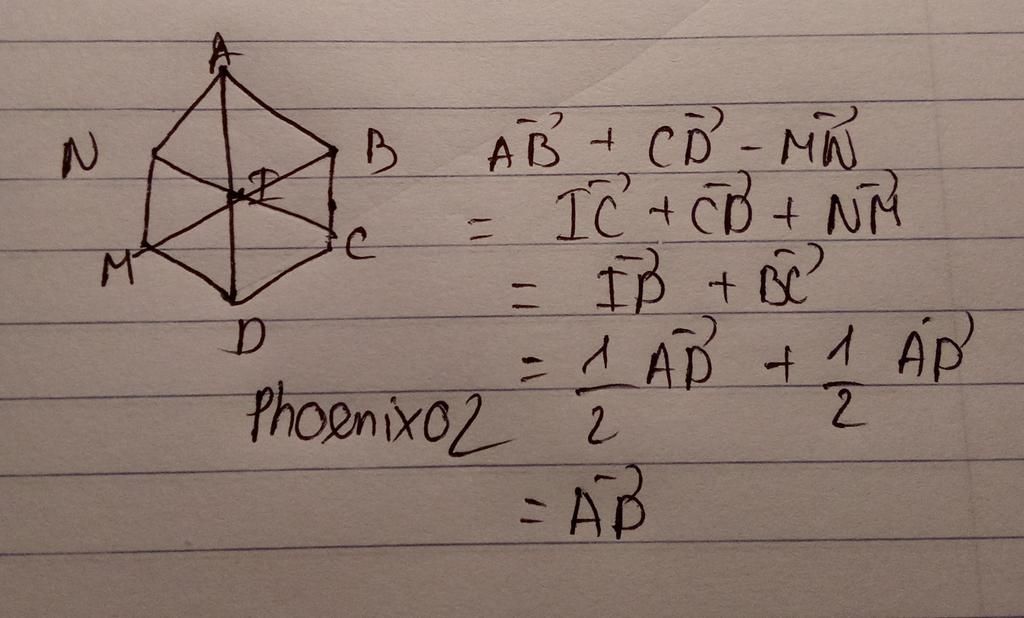 A
N B
I
M C
D
Phoenix02
$\vec{AB} + \vec{CD} - \vec{MN}$
$= \vec{IC} + \vec{CD} + \vec{NM}$
$= \vec{ID} + \vec{BC}$
$= \frac{1}{2} \vec{AD} + \frac{1}{2} \vec{AD}$
$= \vec{AD}$